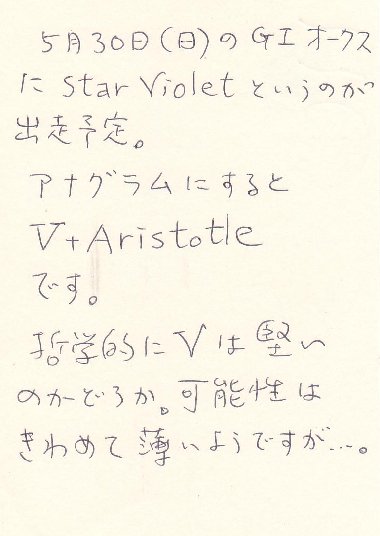 5月30日(日)のGIオークス
にStar Violetというのが
出走予定。
アナグラムにすると
V+Aristotle
です。
哲学的にVは堅い
のかどうか。可能性は
きわめて薄いようですが…。